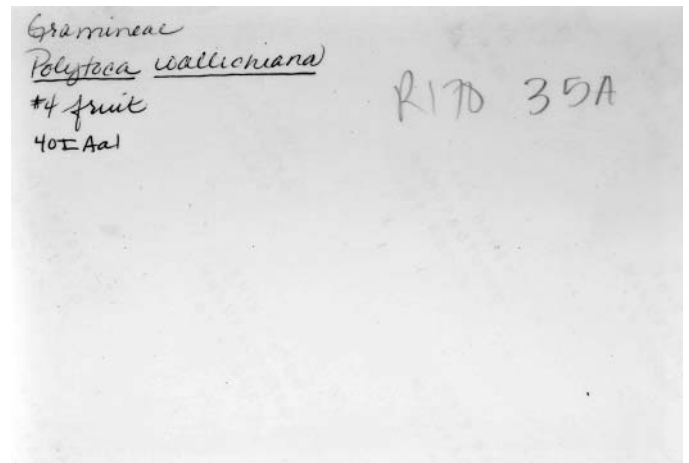 Gramineae
Polytoca wallichiana
#4 fruit
40I Aa1
R170 35A